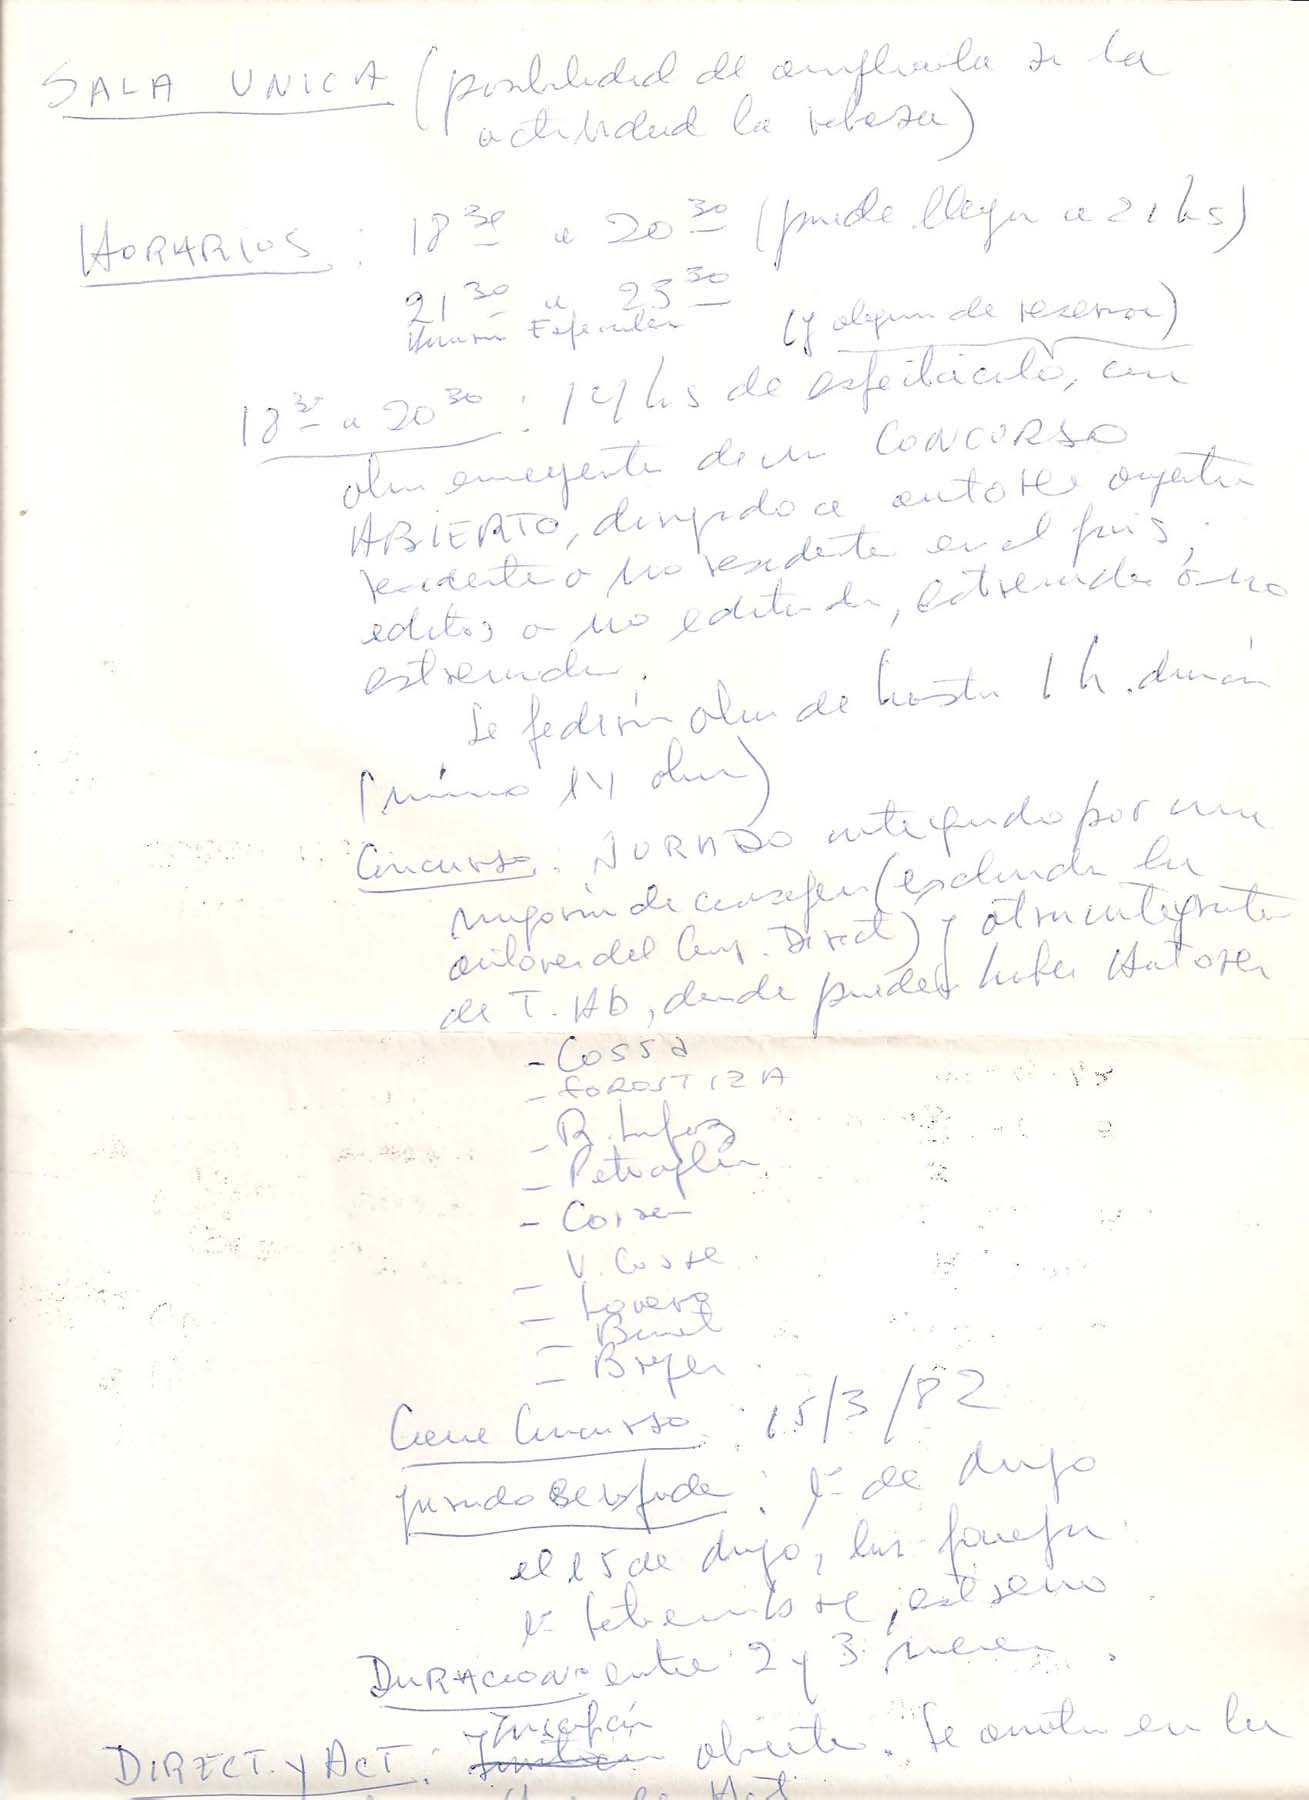 SALA UNICA (posibilidad de ampliarla si la
actividad la rebasa)
HORARIOS: 18 30 a 20 30 (puede llegar a 21 hs)
21 30 a 23 30
(y algunas de reserva)
18 30 a 20 30: 14 hs de espectáculo, con
obras emergentes de un CONCURSO
ABIERTO, dirigido a autores argentinos
residentes o no residentes en el país,
editos o no editados, estrenados ó no
estrenados.
Se pedirán obras de hasta 1 h. duración
(mínimo 14 obras)
Concurso: JURADO integrado por una
mayoría de consejeros (excluidos los
autores del Cons. Direct) y otros integrantes
de T. Ab, donde pueden haber Autores
- Cossa
- GOROSTIZA
- Petraglia
- Lovero
Cierre Concurso: 15/3/82
jurado se expide: 1º de
el 15 de
1º Setiembre, estreno
DURACION: entre 2 y 3 meses.
Inscripción
DIRECT. y ACT.: abierta. Se anotan en la